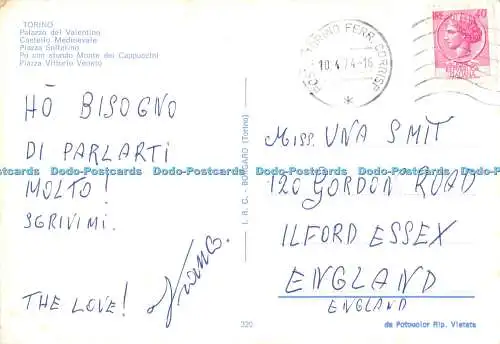 TORINO
Palazzo del Valentino
Castello Medioevale
Piazza Solferino
Po con sfondo Monte dei Cappuccini
Piazza Vittorio Veneto
HÒ BISOGNO
DI PARLARTI
MOLTO!
SGRIVIMI.
THE LOVE!
Franco.
I. R. C. - BONGARD (Torino)
320
TORINO FERR. CORRISP
10.4.74-16
LIRE 40
Miss. UNA SMIT
120 GORDON ROAD
ILFORD ESSEX
ENGLAND
ENGLAND
da Fotocolor Rip. Vietata
Dodo-Postcards Dodo-Postcards Dodo-Postcards Dodo-Postcards